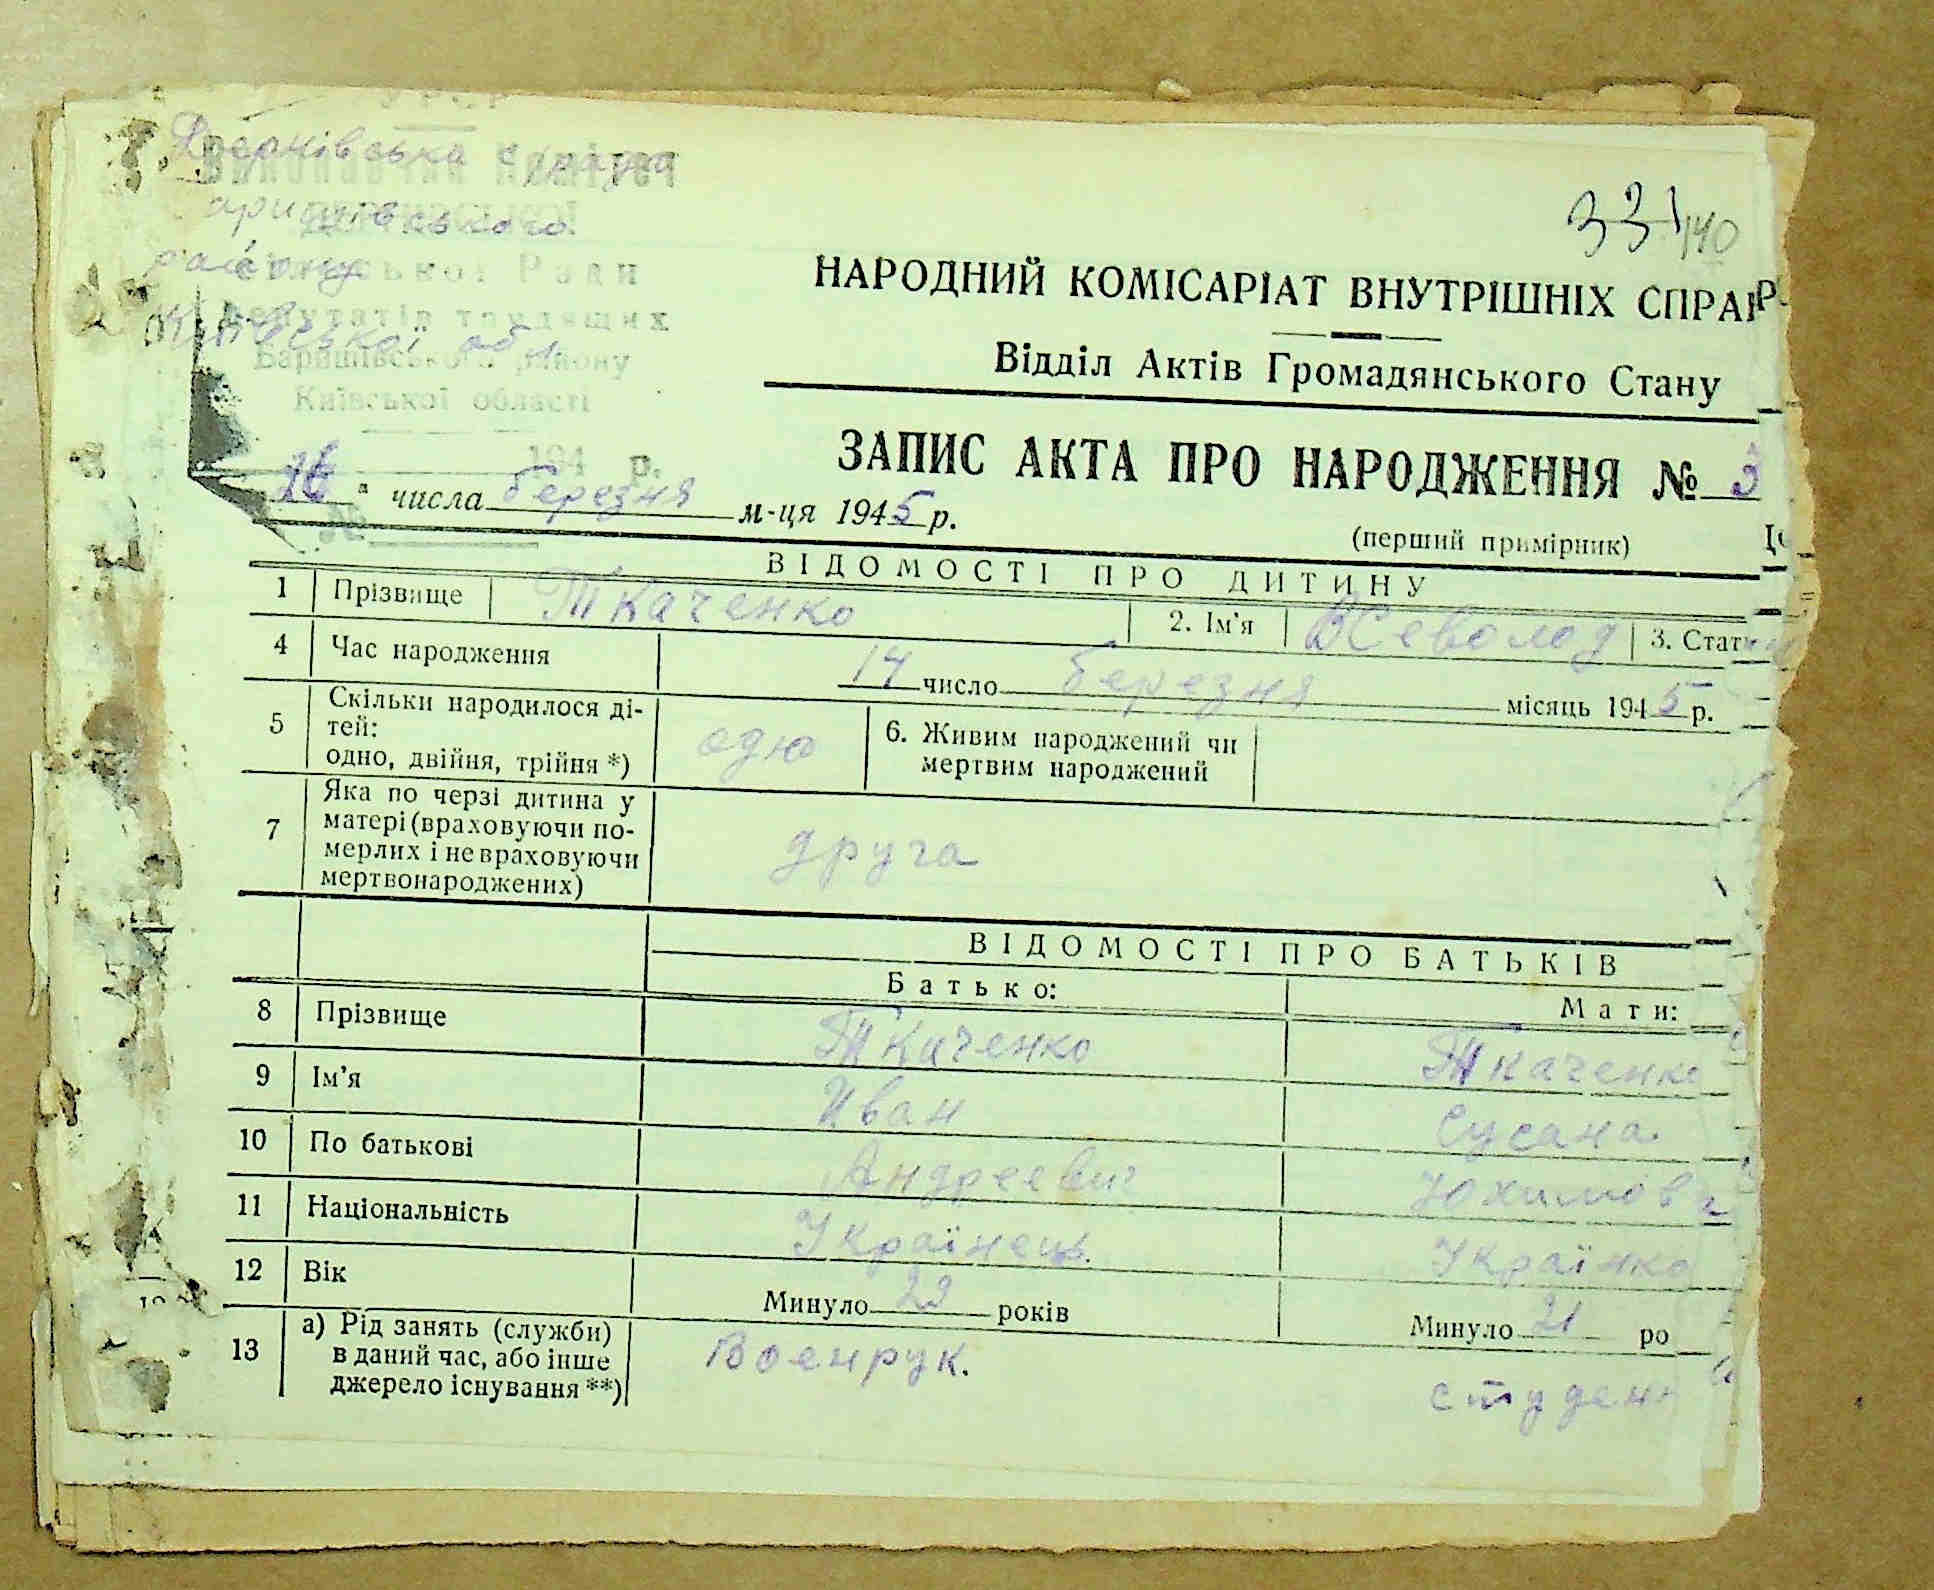 УРСР
Виконавчий Комітет
сільської Ради
депутатів трудящих
Баришівського району
Київської області
194 р.
№
с рада
району
Київської обл.
331
140
НАРОДНИЙ КОМІСАРІАТ ВНУТРІШНІХ СПРАВ
Відділ Актів Громадянського Стану
ЗАПИС АКТА ПРО НАРОДЖЕННЯ № 3
„16“ числа березня м-ця 1945 р.
(перший примірник)
ВІДОМОСТІ ПРО ДИТИНУ
1 Прізвище Ткаченко 2. Ім’я Всеволод 3. Стать
4 Час народження 14 число березня місяць 1945 р.
5 Скільки народилося ді-
тей:
одно, двійня, трійня *) одно
6. Живим народжений чи
мертвим народжений
7 Яка по черзі дитина у
матері (враховуючи по-
мерлих і не враховуючи
мертвонароджених) друга
ВІДОМОСТІ ПРО БАТЬКІВ
Батько: Мати:
8 Прізвище Ткаченко Ткаченко
9 Ім’я Иван Сусана
10 По батькові Андреевич Юхимовна
11 Національність Українець. Українка
12 Вік Минуло років Минуло 21 ро
13 а) Рід занять (служби)
в даний час, або інше
джерело існування **) Военрук. студен